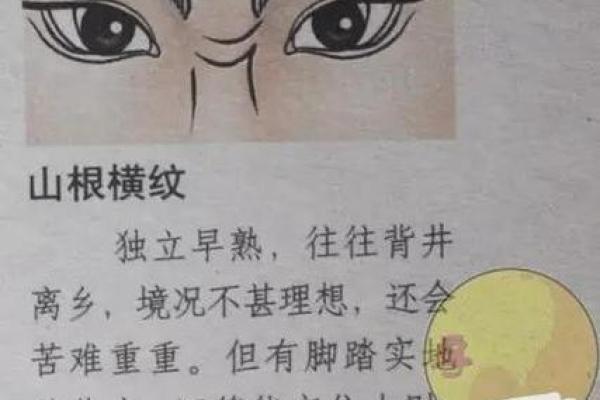 山根横纹
独立早熟，往往背井
离乡，境况不甚理想，还会
苦难重重。但有脚踏实地